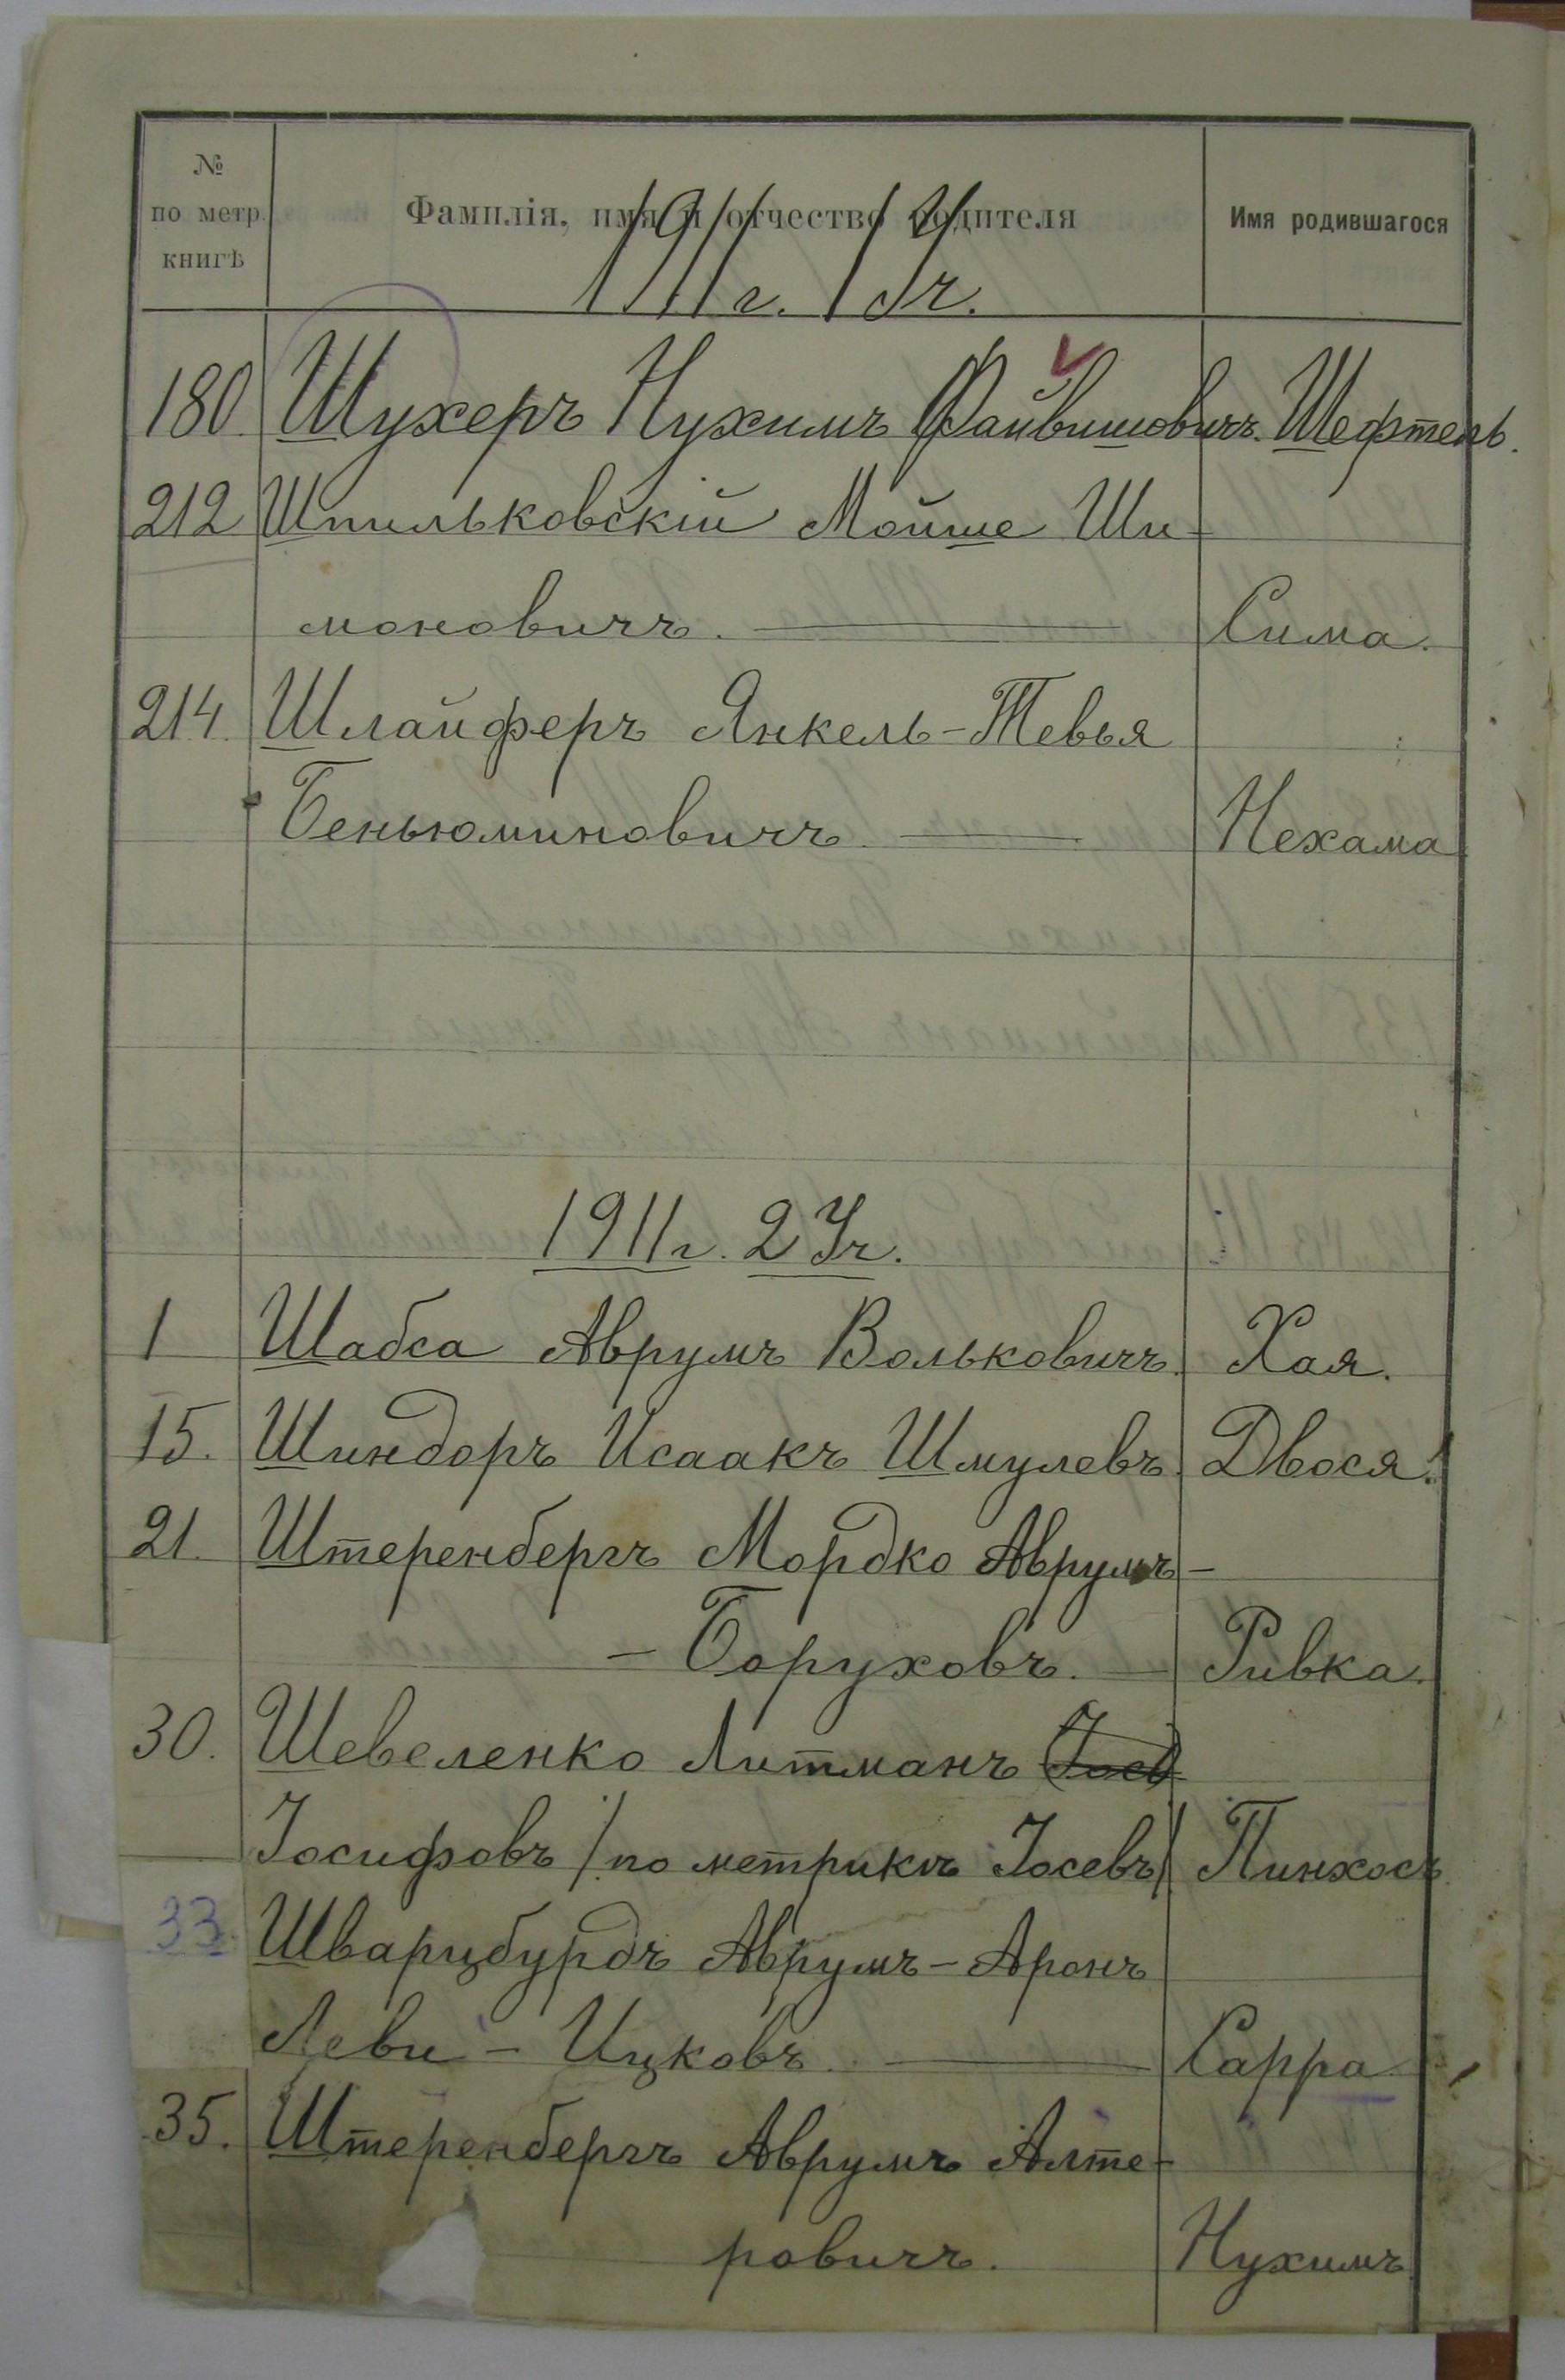 № по метр. книгѣ
Фамилія, имя и отчество родителя
Имя родившагося
1911 г. 1 Уч.
180 Шухеръ Нухимъ Файвишовичъ. Шефтель.
212 Шпильковскій Мойше Ши-
моновичъ. — Сима.
214. Шлайферъ Янкель-Тевья
Беньюминовичъ — Нехама
1911 г. 2 Уч.
1 Шабса Аврумъ Вольковичъ. Хая.
15. Шиндоръ Исаакъ Шмулевъ. Двося.
21. Штеренбергъ Мордко Аврумъ-
- Боруховъ. — Ривка.
30. Шевеленко Литманъ (Іос)
Іосифовъ /по метрикѣ Іосевъ/ Пинхосъ
33. Шварцбурдъ Аврумъ-Аронъ
Леви - Ицковъ — Сарра
35. Штеренбергъ Аврумъ Алте-
ровичъ. Нухимъ